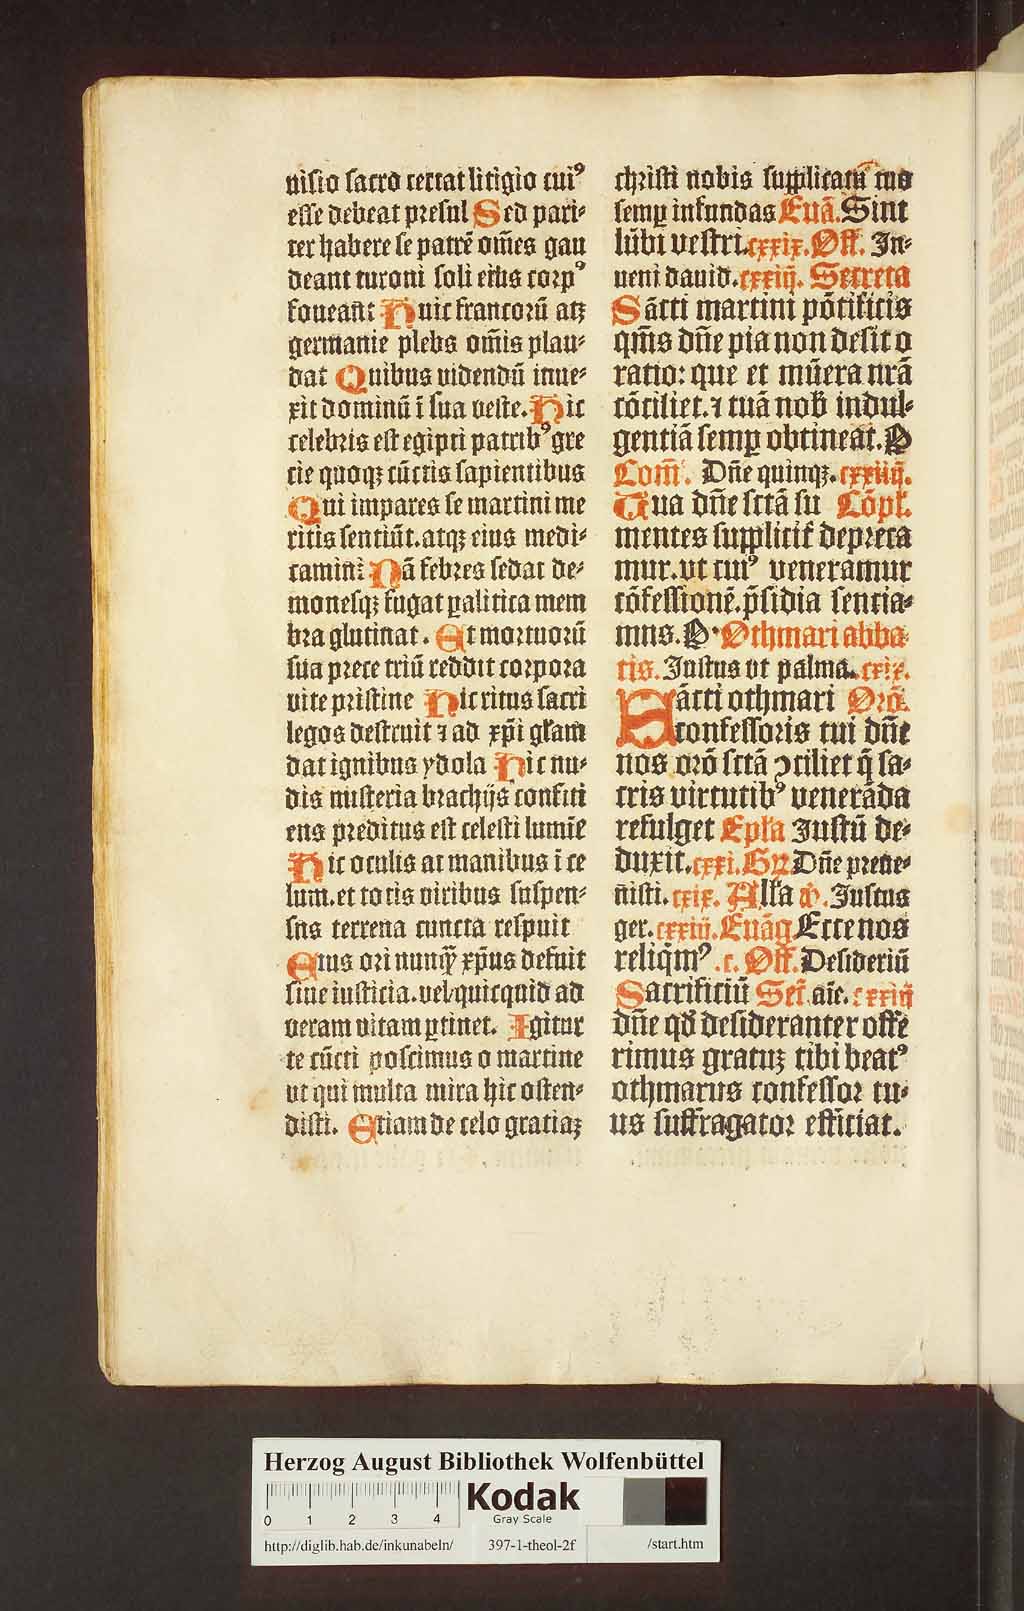 nisio sacro certat litigio cuiꝰ
esse debeat presul Sed pari⸗
ter habere se patrē om̄es gau
deant turoni soli eius corpꝰ
foueant Huic francorū atqꝫ
germanie plebs om̄is plau⸗
dat Quibus videndū inue⸗
xit dominū ī sua veste. Hic
celebris est egipti patribꝰ gre
cie quoqꝫ cūctis sapientibus
Qui impares se martini me
ritis sentiūt. atqꝫ eius medi⸗
camini Nā febres sedat de⸗
monesqꝫ fugat ꝑalitica mem
bra glutinat. Et mortuorū
sua prece triū reddit corpora
vite pristine Hic ritus sacri
legos destruit ⁊ ad xp̄i gl̄am
dat ignibus ydola Hic nu⸗
dis misteria brachijs confici
ens preditus est celesti lumīe
Hic oculis ac manibus ī ce
lum. et totis viribus suspen⸗
sus terrena cuncta respuit
Eius ori nunq̄ xp̄us defuit
siue iusticia. vel quicquid ad
veram vitam ꝑtinet. Igitur
te cūcti poscimus o martine
vt qui multa mira hic osten⸗
disti. Etiam de celo gratiaꝫ
christi nobis supplicatu tuo
semꝑ infundas Euā. Sint
lūbi vestri. cxxix. Off. In⸗
ueni dauid. cxxiij. Secreta
Sācti martini pōtificis
qm̄s dn̄e pia non desit o
ratio: que et mūera nr̄a
cōciliet. ⁊ tuā nob̄ indul⸗
gentiā semꝑ obtineat. P
Com̄. Dn̄e quinqꝫ. cxxiiij.
Qua dn̄e sctā su Cōpl̄.
mentes supplicit̄ depreca
mur. vt cuiꝰ veneramur
cōfessionē. p̄sidia sencia⸗
mus. P. Othmari abba
tis. Justus vt palma. cxix.
Sācti othmari Orō.
confessoris tui dn̄e
nos orō sctā ꝯciliet q̄ sa⸗
cris virtutibꝰ venerāda
refulget Epl̄a Justū de⸗
duxit. cxxi. Gꝝ Dn̄e preue⸗
nisti. cxix. All̄a ꝟ. Justus
ger. cxxiij. Euāg Ecce nos
reliq̄mꝰ .c. Off. Desideriū
Sacrificiū Scr̄. aīe. cxxiij
dn̄e qđ desideranter offe
rimus gratuꝫ tibi beatꝰ
othmarus confessor tu⸗
us suffragator efficiat.
Herzog August Bibliothek Wolfenbüttel
0 1 2 3 4
Kodak
Gray Scale
http://diglib.hab.de/inkunabeln/ 397-1-theol-2f /start.htm